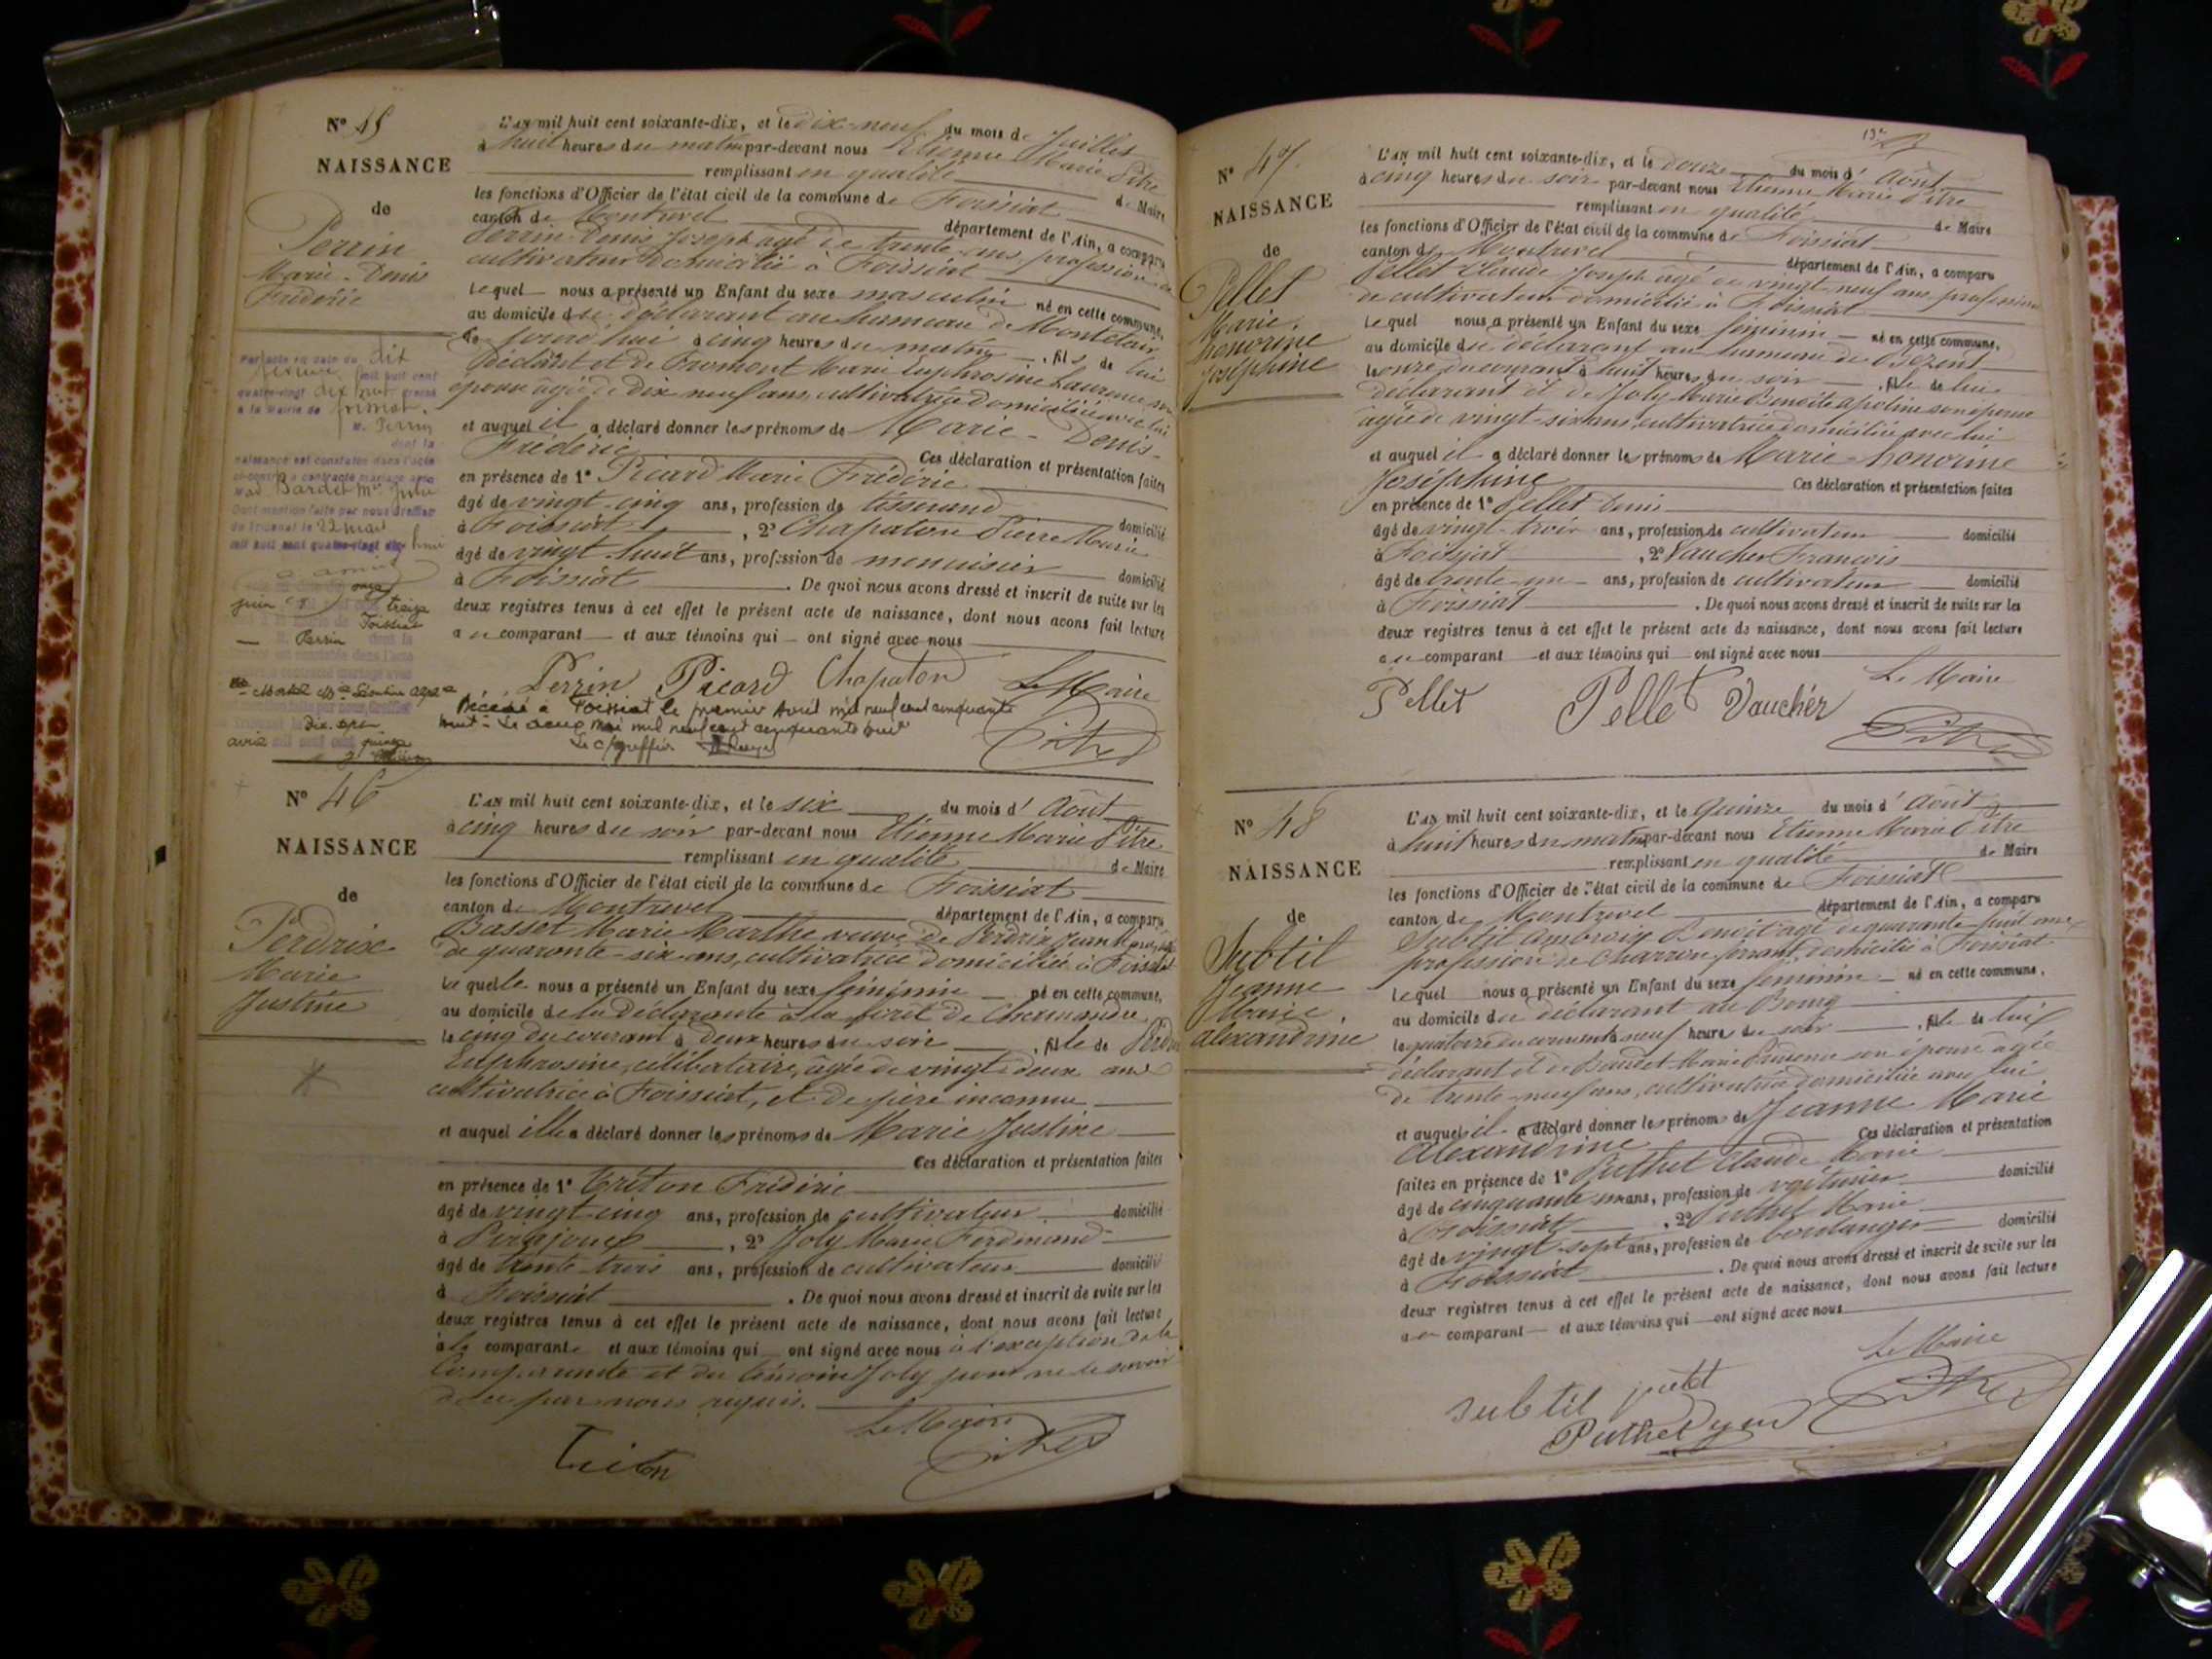 N° 45
NAISSANCE
de
Perrin
Marie-Denis
Frédéric
L'AN mil huit cent soixante-dix, et le dix-neuf du mois de Juillet
à huit heures du matin par-devant nous Etienne Marie Pitre
remplissant en qualité de Maire
les fonctions d'Officier de l'état civil de la commune de Foissiat
canton de Montrevel département de l'Ain, a comparu
Perrin Denis Joseph âgé de trente ans, profession de
cultivateur domicilié à Foissiat
Lequel nous a présenté un Enfant du sexe masculin né en cette commune,
au domicile du déclarant au hameau de Montclair
jourd'hui à cinq heures du matin, fils de lui
déclarant et de Fromont Marie Euphrosine Laurence son
épouse âgée de dix-neuf ans, cultivatrice domiciliée avec lui
et auquel il a déclaré donner les prénoms de Marie-Denis-
Frédéric Ces déclaration et présentation faites
en présence de 1° Picard Marie Frédéric
âgé de vingt-cinq ans, profession de tisserand domicilié
à Foissiat, 2° Chapaton Pierre Marie
âgé de vingt-huit ans, profession de menuisier domicilié
à Foissiat. De quoi nous avons dressé et inscrit de suite sur les
deux registres tenus à cet effet le présent acte de naissance, dont nous avons fait lecture
au comparant et aux témoins qui ont signé avec nous
Perrin Picard Chapaton Le Maire
Décédé à Foissiat le premier Avril mil neuf cent cinquante
huit - Le deux mai mil neuf cent cinquante huit
Le c/greffier
Pitre
Par acte en date du dix
février mil huit cent
quatre-vingt dix huit dressé
à la mairie de
M. Perrin
dont la
naissance est constatée dans l'acte
ci-contre a contracté mariage avec
Bardet Mie Julie
Dont mention faite par nous Greffier
du Tribunal le 22 mars
mil huit cent quatre-vingt dix huit
onze
juin treize
Foissiat
Perrin dont la
N° 46
NAISSANCE
de
Perdrix
Marie
Justine
L'AN mil huit cent soixante-dix, et le six du mois d'Août
à cinq heures du soir par-devant nous Etienne Marie Pitre
remplissant en qualité de Maire
les fonctions d'Officier de l'état civil de la commune de Foissiat
canton de Montrevel département de l'Ain, a comparu
Basset Marie Marthe veuve de Perdrix Jean Marie, âgée
de quarante-six ans, cultivatrice domiciliée à Foissiat
Lequelle nous a présenté un Enfant du sexe féminin né en cette commune,
au domicile de la déclarante à la forêt de Chermandre
le cinq du courant à deux heures du soir, fille de Perdrix
Euphrosine, célibataire, âgée de vingt-deux ans
cultivatrice à Foissiat, et de père inconnu
et auquel elle a déclaré donner les prénoms de Marie Justine
Ces déclaration et présentation faites
en présence de 1° Triton Frédéric
âgé de vingt-cinq ans, profession de cultivateur domicilié
à Pirajoux, 2° Joly Marie Ferdinand
âgé de trente-trois ans, profession de cultivateur domicilié
à Foissiat. De quoi nous avons dressé et inscrit de suite sur les
deux registres tenus à cet effet le présent acte de naissance, dont nous avons fait lecture
à la comparante et aux témoins qui ont signé avec nous à l'exception de la
Comparante et du témoin Joly pour ne le savoir
de ce par nous requis.
Le Maire
Triton Pitre
13e
N° 47
NAISSANCE
de
Pellet
Marie.
honorine
Joséphine
L'AN mil huit cent soixante-dix, et le douze du mois d'Août
à cinq heures du soir par-devant nous Etienne Marie Pitre
remplissant en qualité de Maire
les fonctions d'Officier de l'état civil de la commune de Foissiat
canton de Montrevel département de l'Ain, a comparu
Pellet Claude Joseph âgé de vingt-neuf ans, profession
de cultivateur domicilié à Foissiat
Lequel nous a présenté un Enfant du sexe féminin né en cette commune,
au domicile du déclarant au hameau de Bezent
le onze du courant à huit heures du soir, fille de lui
déclarant et de Joly Marie Benoite apoline son épouse
âgée de vingt-six ans, cultivatrice domiciliée avec lui
et auquel il a déclaré donner les prénoms de Marie-honorine
Joséphine Ces déclaration et présentation faites
en présence de 1° Pellet Denis
âgé de vingt-trois ans, profession de cultivateur domicilié
à Foissiat, 2° Vaucher François
âgé de trente-un ans, profession de cultivateur domicilié
à Foissiat. De quoi nous avons dressé et inscrit de suite sur les
deux registres tenus à cet effet le présent acte de naissance, dont nous avons fait lecture
au comparant et aux témoins qui ont signé avec nous
Le Maire
Pellet Pellet Vaucher Pitre
N° 48
NAISSANCE
de
Subtil
Jeanne
Marie.
alexandrine
L'AN mil huit cent soixante-dix, et le Quinze du mois d'Août
à huit heures du matin par-devant nous Etienne Marie Pitre
remplissant en qualité de Maire
les fonctions d'Officier de l'état civil de la commune de Foissiat
canton de Montrevel département de l'Ain, a comparu
Subtil Ambroise Benoit âgé de quarante-huit ans,
profession de Charron ferrant, domicilié à Foissiat
Lequel nous a présenté un Enfant du sexe féminin né en cette commune,
au domicile du déclarant au Bourg
le quatorze du courant à neuf heures du soir, fille de lui
déclarant et de Boudet Marie Prudence son épouse âgée
de trente-neuf ans, cultivatrice domiciliée avec lui
et auquel il a déclaré donner les prénoms de Jeanne Marie
Alexandrine Ces déclaration et présentation
faites en présence de 1° Puthet Claude Marie
âgé de cinquante un ans, profession de voiturier domicilié
à Foissiat, 2° Puthet Marie
âgé de vingt-sept ans, profession de boulanger domicilié
à Foissiat. De quoi nous avons dressé et inscrit de suite sur les
deux registres tenus à cet effet le présent acte de naissance, dont nous avons fait lecture
au comparant et aux témoins qui ont signé avec nous
Le Maire
subtil putet Pitre
Puthet